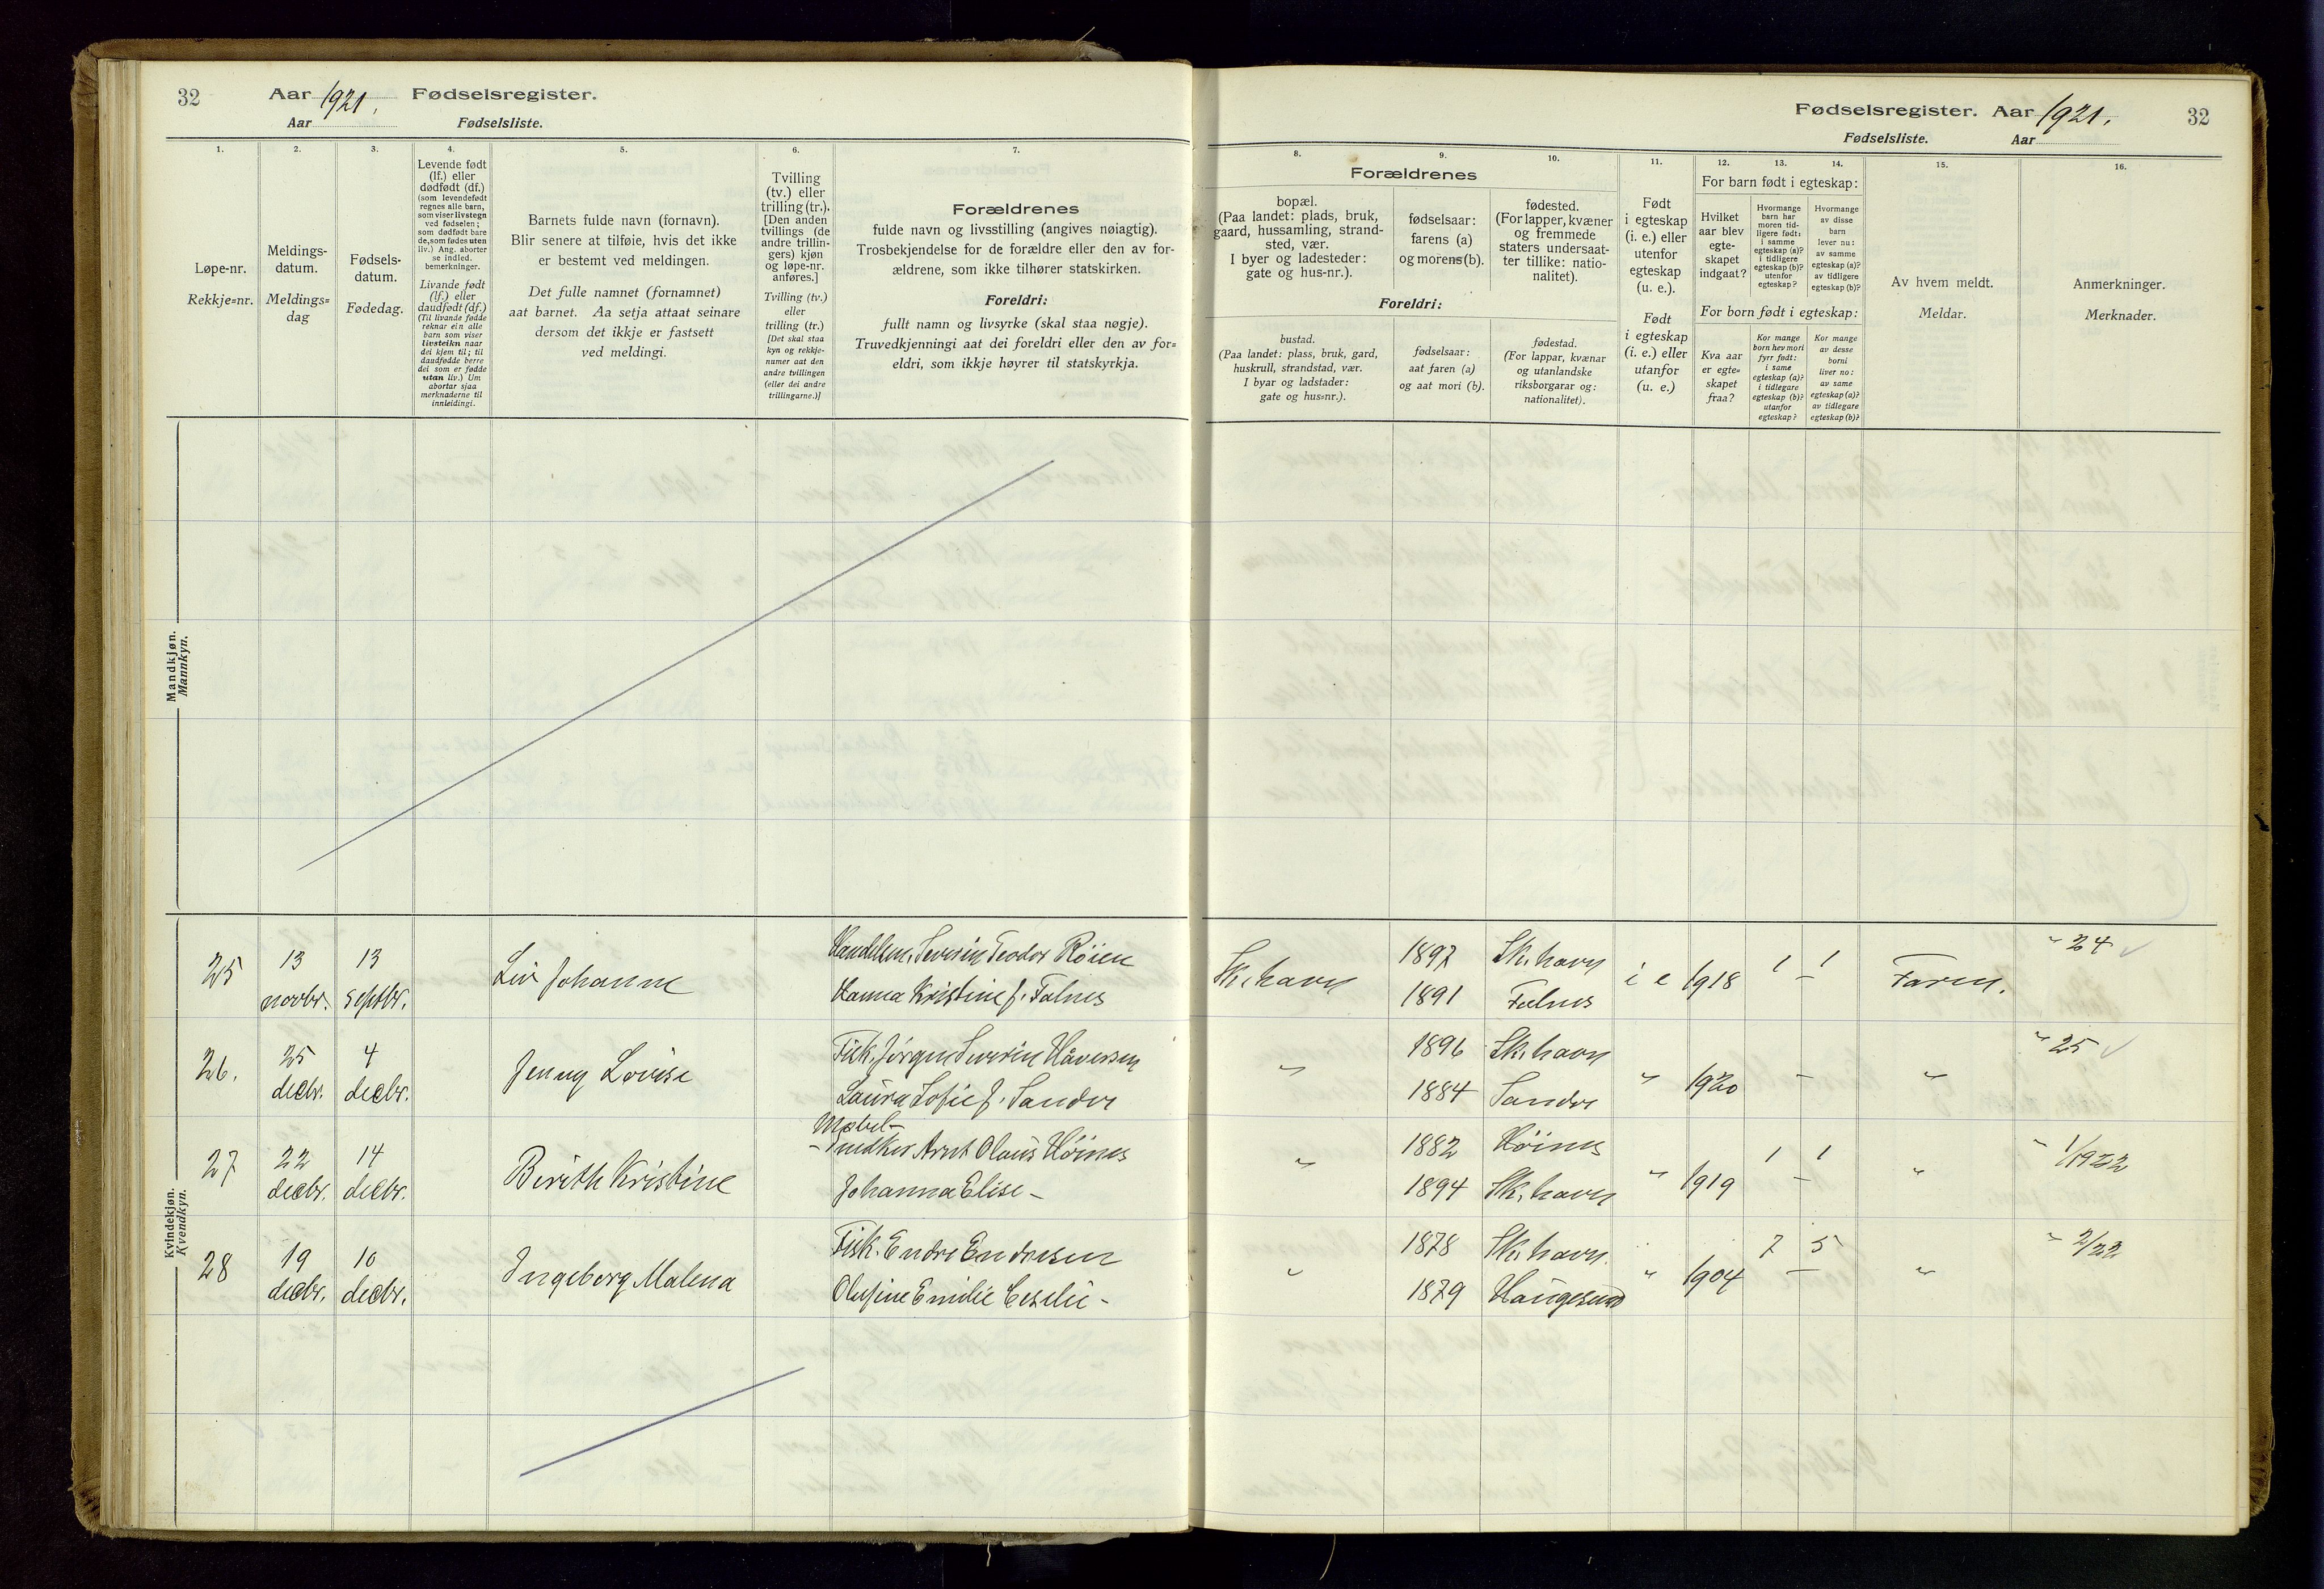 32
Aar 1921. Fødselsregister.
Aar Fødselsliste.
1.
Løpe-nr.
Rekkje=nr.
2.
Meldings-
datum.
Meldings=
dag
3.
Fødsels-
datum.
Fødedag.
4.
Levende født
(lf.) eller
dødfødt (df.)
(som levendefødt
regnes alle barn,
som viser livstegn
ved fødselen;
som dødfødt bare
de, som fødes uten
liv.) Ang. aborter
se indled.
bemerkninger.
Livande født
(lf.) eller
daudfødt (df.)
(Til livande fødde
reknar ein alle
barn som viser
livsteikn naar
dei kjem til; til
daudfødde berre
dei som er fødde
utan liv.) Um
abortar sjaa
merknaderne til
innleidingi.
5.
Barnets fulde navn (fornavn).
Blir senere at tilføie, hvis det ikke
er bestemt ved meldingen.
Det fulle namnet (fornamnet)
aat barnet. Aa setja attaat seinare
dersom det ikkje er fastsett
ved meldingi.
6.
Tvilling
(tv.) eller
trilling (tr.).
[Den anden
tvillings (de
andre trillin-
gers) kjøn
og løpe-nr.
anføres.]
Tvilling (tv.)
eller
trilling (tr.)
[Det skal staa
kyn og rekkje-
numer aat den
andre tvillingen
(eller dei andre
trillingarne.)]
7.
Forældrenes
fulde navn og livsstilling (angives nøiagtig).
Trosbekjendelse for de forældre eller den av for-
ældrene, som ikke tilhører statskirken.
Foreldri:
fullt namn og livsyrke (skal staa nøgje).
Truvedkjenningi aat dei foreldri eller den av for=
eldri, som ikkje høyrer til statskyrkja.
Mandkjøn.
Mannkyn.
Kvindekjøn.
Kvendkyn.
25 13 novbr. 13 septbr. Liv Johanne Handelsm. Severin Teodor Röien
Hanna Kristine f. Falnes
26. 25 decbr. 4 decbr. Jenny Lovise Fisk. Jörgen Severin Håversen
Laura Sofie f. Sandve
27 22 decbr. 14 decbr. Berith Kristine Møbel-
snedker Arnt Olaus Höines
Johanna Elise -
28 19 decbr. 10 decbr. Ingeborg Malena Fisk. Endre Endresen
Olufine Emilie Ceselie -
Fødselsregister. Aar 1921. 32
Fødselsliste. Aar
8.
Forældrenes
bopæl.
(Paa landet: plads, bruk,
gaard, hussamling, strand-
sted, vær.
I byer og ladesteder:
gate og hus-nr.).
Foreldri:
bustad.
(Paa landet: plass, bruk, gard,
huskrull, strandstad, vær.
I byar og ladstader:
gate og hus=nr.).
9.
fødselsaar:
farens (a)
og morens (b).
fødselsaar:
aat faren (a)
og aat mori (b).
10.
fødested.
(For lapper, kvæner
og fremmede
staters undersaat-
ter tillike: natio-
nalitet).
fødestad.
(For lappar, kvænar
og utanlandske
riksborgarar og:
nationalitet).
11.
Født
i egteskap
(i. e.) eller
utenfor
egteskap
(u. e.).
Født
i egteskap
(i. e.) eller
utanfor
(u. e.)
12. 13. 14.
For barn født i egteskap:
Hvilket
aar blev
egte-
skapet
indgaat?
Hvormange
barn har
moren tid-
ligere født:
i samme
egteskap (a)?
i tidligere
egteskap (b)?
utenfor
egteskap?
Hvormange
av disse
barn
lever nu:
av samme
egteskap (a)?
av tidligere
egteskap (b)?
For born født i egteskap:
Kva aar
er egte=
skapet
fraa?
Kor mange
born hev mori
fyrr født:
i same
egteskap (a)?
i tidlegare
egteskap (b)?
utanfor
egteskap?
Kor mange
av desse
borni
liver no:
av same
egteskap (a)?
av tidlegare
egteskap (b)?
15.
Av hvem meldt.
Meldar.
16.
Anmerkninger.
Merknader.
Sk. havn 1897 Sk. havn i e 1918 1 1 Faren. " 24
1891 Falnes –
" 1896 Sk. havn " 1920 – " " 25
1884 Sandve
" 1882 Höines " 1919 1 1 " " 1/1922
1894 Sk. havn –
" 1878 Sk. havn. " 1904 7 5 " " 2/22
1879 Haugesund –